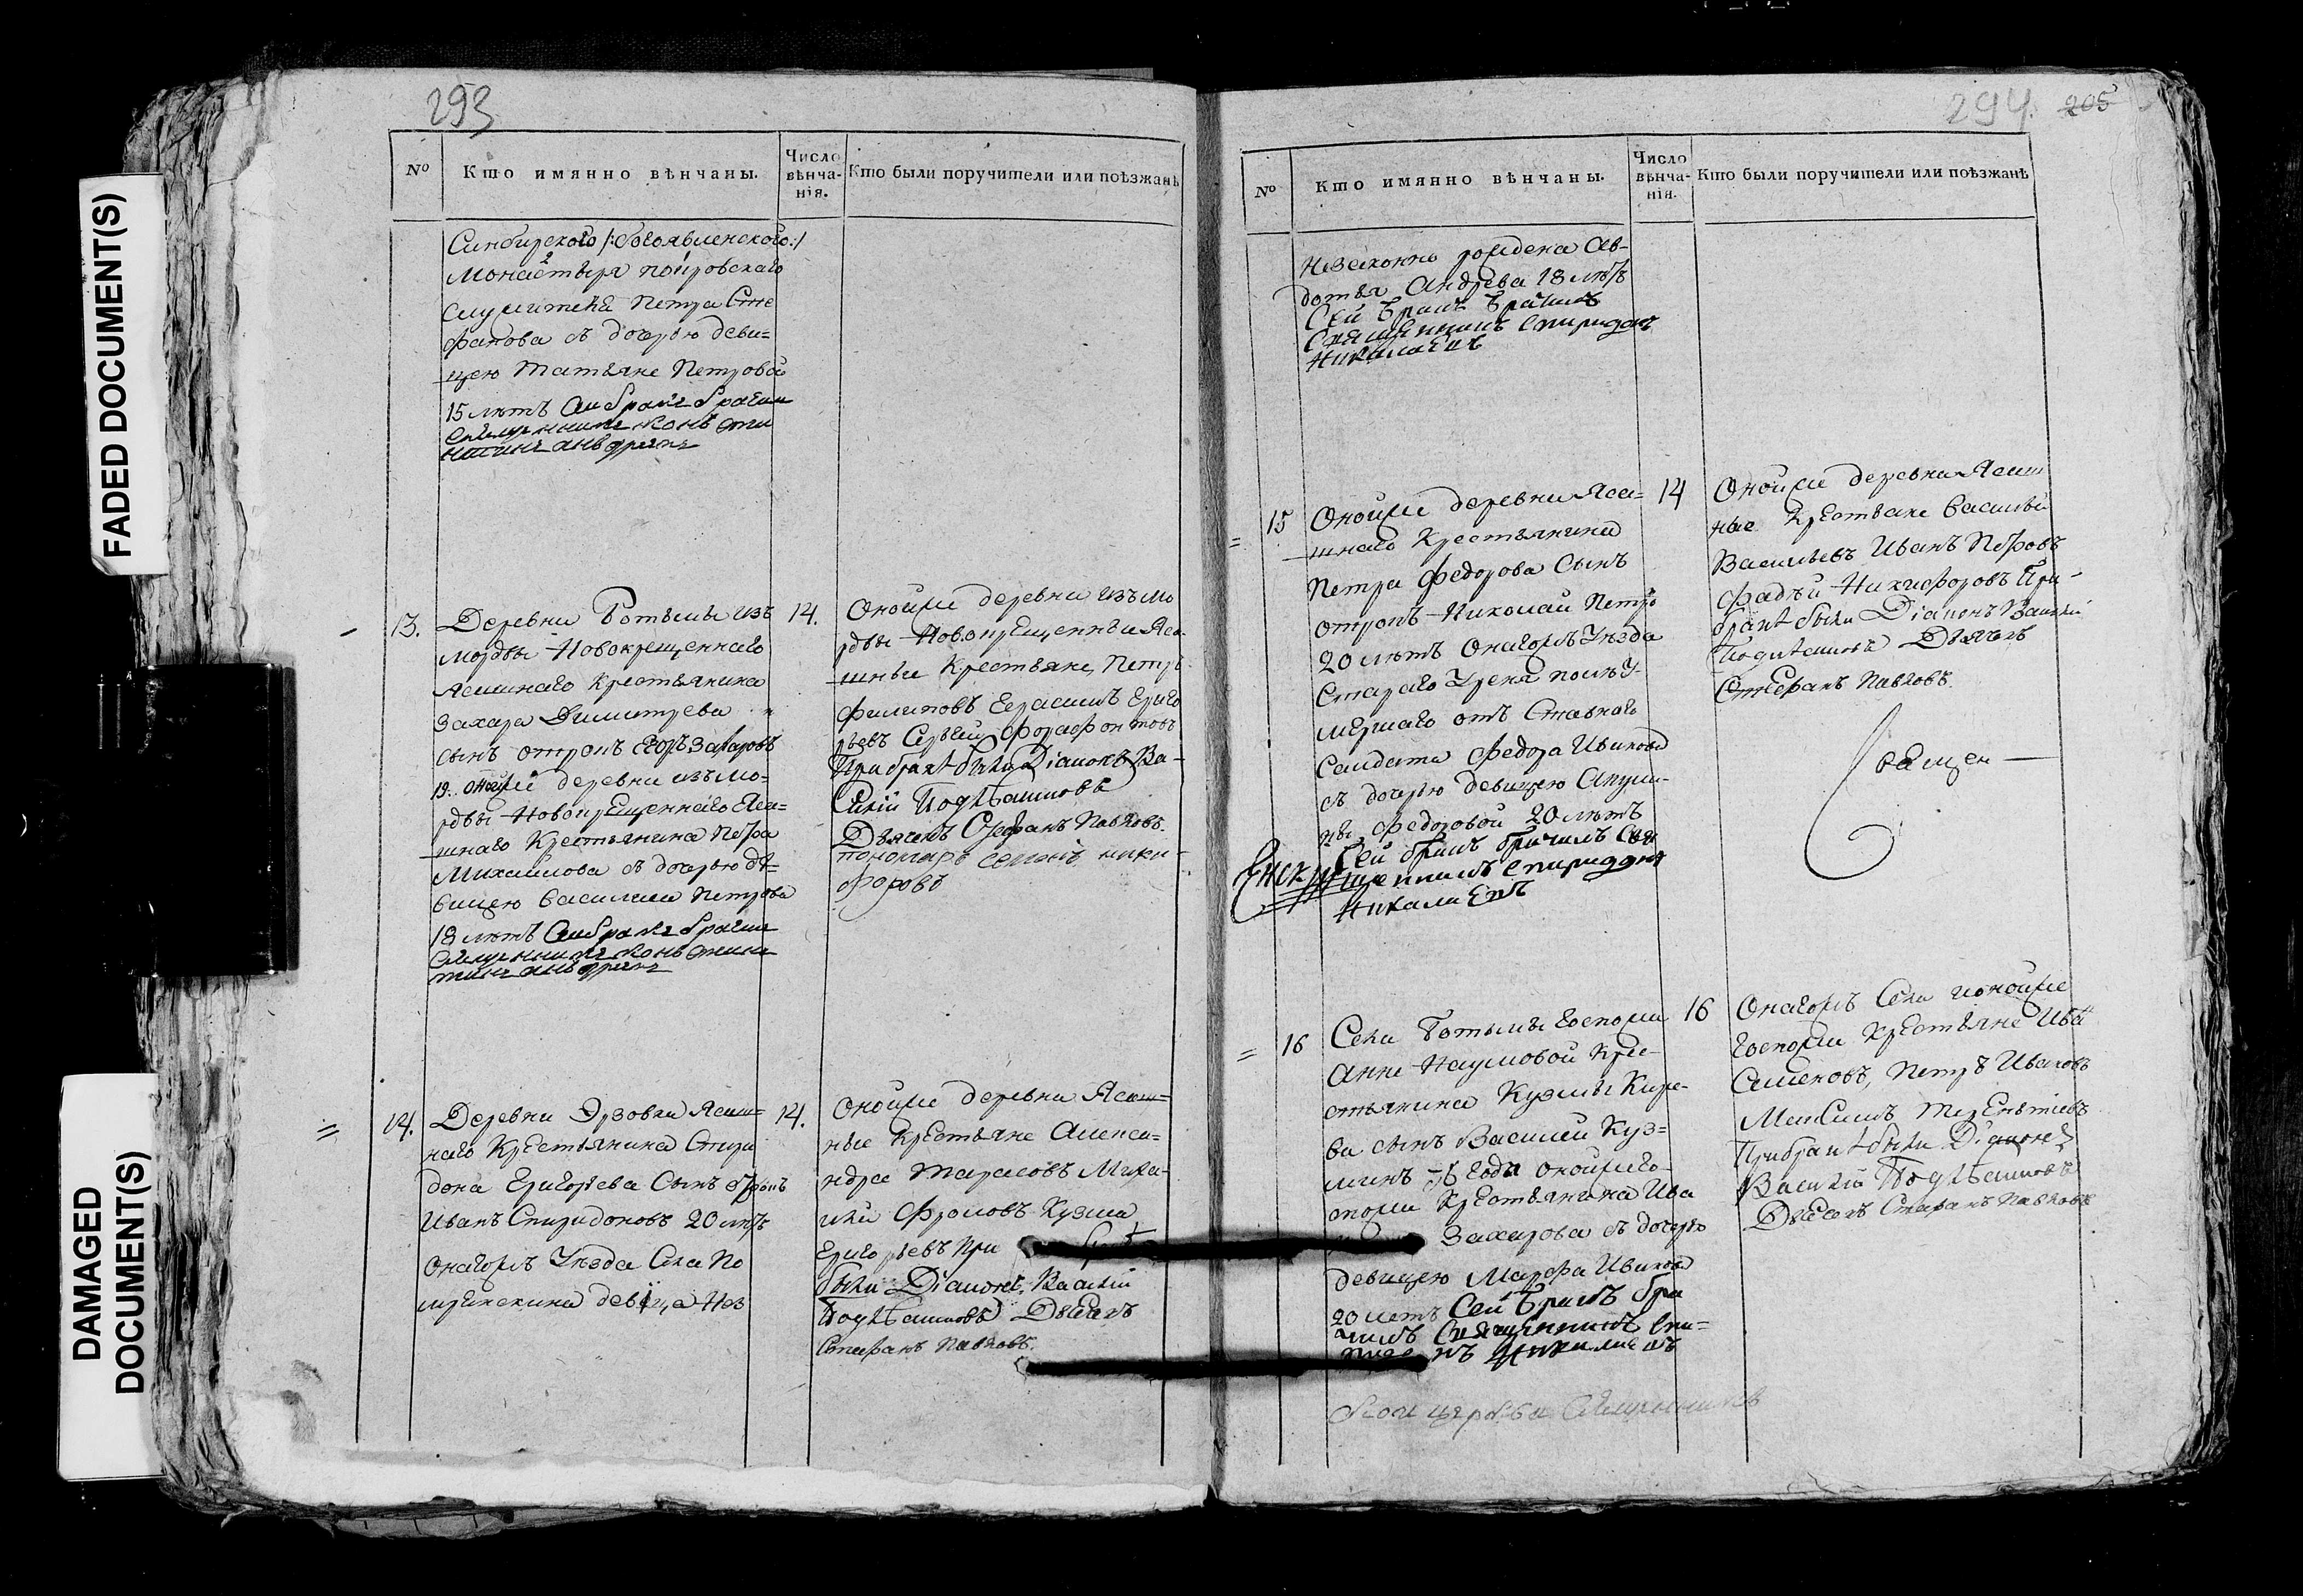 FADED DOCUMENT(S)
DAMAGED
DOCUMENT(S)
293
№
Кто имянно вѣнчаны.
Число
вѣнча-
нія.
Кто были поручители или поѣзжанѣ
Синбирскаго /:богоявленскаго:/
монастыря покровскаго
служителя Петра Сте
фанова съ дочерью деви=
цею Татьяне Петровой
15 летъ
13.
Деревни Ботьмы изъ
мордвы Новокрещеннаго
Ясашнаго крестьянина
Захара Димитрева
сынъ отрокъ Егоръ Захаровъ
19. оной же деревни изъ мо-
рдвы Новокрещеннаго Яса=
шнаго крестьянина Петра
Михайлова съ дочерью де=
вицею Василиса Петрова
18 летъ
14.
Оной же деревни изъ мо
рдвы Новокрещенныи Яса-
шныи крестьяне, Петръ
Филиповъ Герасимъ Григо
рьевъ Сергей Форафонтовъ
При бракѣ были Діаконъ Ва-
силій
Дьячекъ Стефанъ Павловъ.
пономарь семенъ ники-
форовъ
14.
Деревни Эрзовки Ясаш=
наго Крестьянина Спири
дона Григорьева Сынъ отрокъ
Иванъ Спиридоновъ 20 летъ
Онагожъ Уезда Села
девица Нез
14.
Оной же деревни Ясаш=
ные крестьяне Алекса=
ндра Тарасовъ Миха-
ила Фроловъ Кузма
Григорьевъ При бракѣ
были Діаконъ, Василій
Дьячекъ
Стефанъ Павловъ.
294. 205
№
Кто имянно вѣнчаны.
Число
вѣнча-
нія.
Кто были поручители или поѣзжанѣ
Незаконно рождена Ав-
дотья Андрева 18 летъ
Сей бракъ брачилъ
Священникъ Спиридонъ
Николаевъ
15
Оной же деревни Яса=
шнаго Крестьянина
Петра Федорова Сынъ
отрокъ Николай Петро
20 летъ Онагожъ Уезда
Стараго Уреня после У-
мершаго отъ Ставнаго
Салдата Федора Иванова
съ дочерью девицею Акули-
ны Федоровой 20 летъ
Сей бракъ брачилъ Свя
щенникъ Спиридонъ
Николаевъ
14
Оной же деревни Ясаш
ные Крестьяне Василей
Васильевъ Иванъ Петровъ
Фадѣй Никифоровъ При
бракѣ были Діаконъ Василій
Дьячекъ
Стефанъ Павловъ.
16
Села Ботьмы Госпожи
Анне Наумовой Кре-
стьянина Кузмы Кире-
ва сынъ Василей Куз=
минъ
Крестьянина Ива
Захарова съ дочерью
девицею Марфа Иванова
20 летъ Сей бракъ бра
чилъ Священникъ Спи=
ридонъ Николаевъ
16
Онагожъ Села и оной же
Госпожи Крестьяне Ива
Семеновъ, Петръ Ивановъ
Максимъ Терентіевъ
При бракѣ были Діаконъ
Василій
Дьячекъ Стефанъ Павловъ